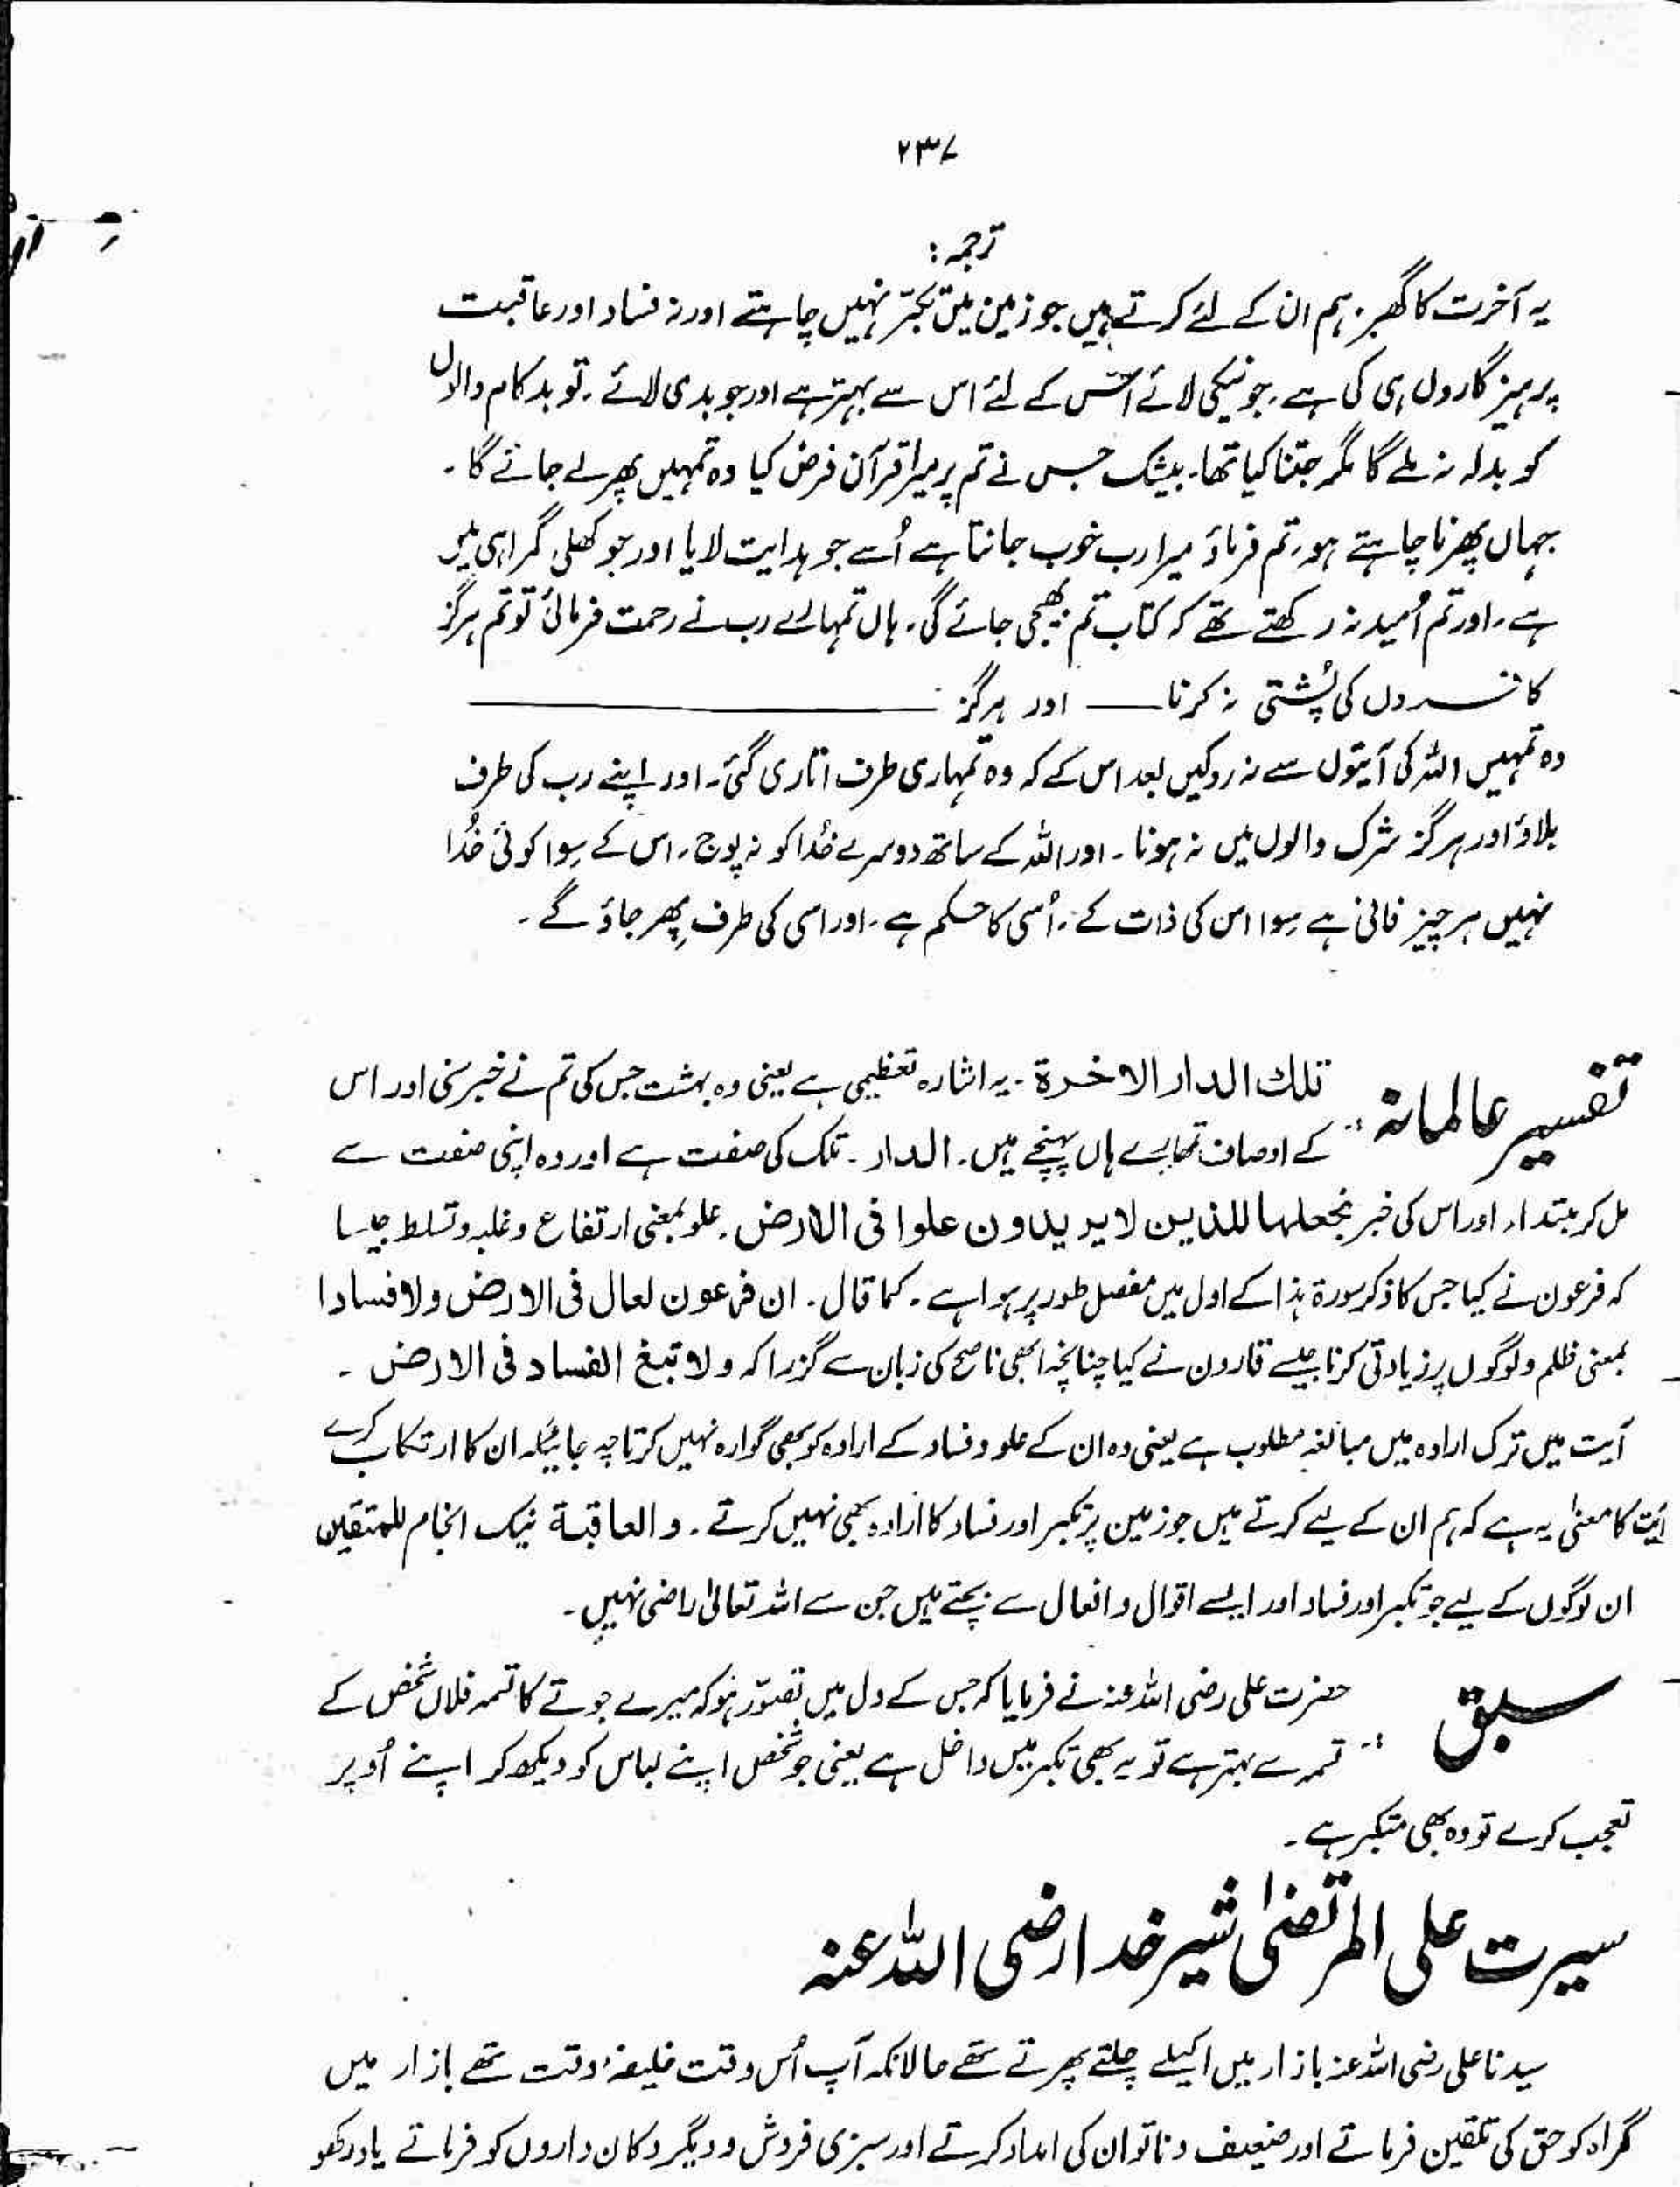 ۲۳۷
ترجمہ:
یہ آخرت کا گھر ہم ان کے لئے کرتے ہیں جو زمین میں تکبّر نہیں چاہتے اور نہ فساد اور عاقبت
پرہیزگاروں ہی کی ہے۔ جو نیکی لائے اس کے لئے اس سے بہتر ہے اور جو بدی لائے۔ تو بدکام والوں
کو بدلہ نہ ملے گا مگر جتنا کیا تھا۔ بیشک جس نے تم پر میرا قرآن فرض کیا وہ تمہیں پھر لے جائے گا۔
جہاں پھرنا چاہتے ہو۔ تم فرماؤ میرا رب خوب جانتا ہے اُسے جو ہدایت لایا اور جو کھلی گمراہی میں
ہے۔ اور تم اُمید نہ رکھتے تھے کہ کتاب تم بھیجی جائے گی۔ ہاں تمہارے رب نے رحمت فرمائی تو تم ہرگز
کافروں کی پُشتی نہ کرنا — اور ہرگز
وہ تمہیں اللہ کی آیتوں سے نہ روکیں بعد اس کے کہ وہ تمہاری طرف اتاری گئی۔ اور اپنے رب کی طرف
بلاؤ اور ہرگز شرک والوں میں نہ ہونا۔ اور اللہ کے ساتھ دوسرے خُدا کو نہ پوج۔ اس کے سِوا کوئی خُدا
نہیں ہر چیز فانی ہے سِوا اس کی ذات کے۔ اُسی کا حکم ہے۔ اور اسی کی طرف پھر جاؤ گے۔
تفسیر عالمانہ :- تلك الدار الاخرۃ ۔ یہ اشارہ تعظیمی ہے یعنی وہ بہشت جس کی تم نے خبر سنی اور اس
کے اوصاف تمہارے ہاں پہنچے ہیں۔ الدار۔ تلک کی صفت ہے اور وہ اپنی صفت سے
مل کر مبتداء۔ اور اس کی خبر نجعلھا للذین لا یریدون علوا فی الارض۔ علو بمعنی ارتفاع و غلبہ و تسلط جیسا
کہ فرعون نے کیا جس کا ذکر سورۃ ہذا کے اول میں مفصل طور پر ہوا ہے۔ کما قال۔ ان فرعون لعال فی الارض ولا فسادا
بمعنی ظلم و لوگوں پر زیادتی کرنا جیسے قارون نے کیا چنانچہ ابھی ناصح کی زبان سے گزرا کہ ولا تبغ الفساد فی الارض ۔
آیت میں ترک ارادہ میں مبالغہ مطلوب ہے یعنی وہ ان کے علو و فساد کے ارادہ کو بھی گوارہ نہیں کرتا چہ جائیکہ ان کا ارتکاب کرے
آیت کا معنیٰ یہ ہے کہ ہم ان کے لیے کرتے ہیں جو زمین پر تکبر اور فساد کا ارادہ بھی نہیں کرتے۔ والعاقبۃ نیک انجام للمتقین
ان لوگوں کے لیے جو تکبر اور فساد اور ایسے اقوال و افعال سے بچتے ہیں جن سے اللہ تعالیٰ راضی نہیں۔
سبق :- حضرت علی رضی اللہ عنہ نے فرمایا کہ جس کے دل میں تصوّر ہو کہ میرے جوتے کا تسمہ فلاں شخص کے
تسمہ سے بہتر ہے تو یہ بھی تکبر میں داخل ہے یعنی جو شخص اپنے لباس کو دیکھ کر اپنے اُوپر
تعجب کرے تو وہ بھی متکبر ہے۔
سیرت علی المرتضیٰ شیر خدا رضی اللہ عنہ
سیدنا علی رضی اللہ عنہ بازار میں اکیلے چلتے پھرتے تھے حالانکہ آپ اُس وقت خلیفۂ وقت تھے بازار میں
گمراہ کو حق کی تلقین فرماتے اور ضعیف و ناتواں کی امداد کرتے اور سبزی فروش و دیگر دکان داروں کو فرماتے یاد رکھو